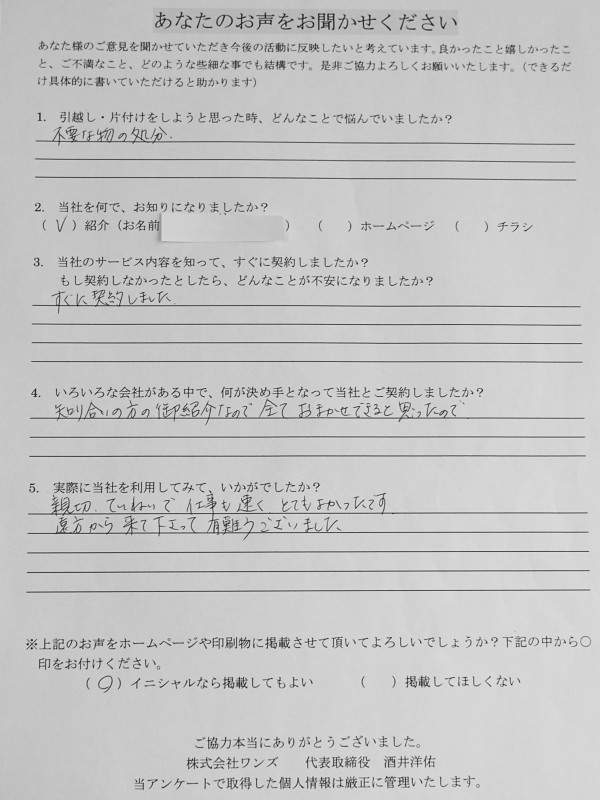 あなたのお声をお聞かせください
あなた様のご意見を聞かせていただき今後の活動に反映したいと考えています。良かったこと嬉しかったこ
と、ご不満なこと、どのような些細な事でも結構です。是非ご協力よろしくお願いいたします。（できるだ
け具体的に書いていただけると助かります）
1. 引越し・片付けをしようと思った時、どんなことで悩んでいましたか？
不要な物の処分.
2. 当社を何で、お知りになりましたか？
（ V ）紹介（お名前 ） （ ）ホームページ （ ）チラシ
3. 当社のサービス内容を知って、すぐに契約しましたか？
もし契約しなかったとしたら、どんなことが不安になりましたか？
すぐに契約しました.
4. いろいろな会社がある中で、何が決め手となって当社とご契約しましたか？
知り合いの方の御紹介なので全ておまかせできると思ったので
5. 実際に当社を利用してみて、いかがでしたか？
親切、ていねいで仕事も速く、とてもよかったです.
遠方から来て下さって有難うございました
※上記のお声をホームページや印刷物に掲載させて頂いてよろしいでしょうか？下記の中から○
印をお付けください。
（ ○ ）イニシャルなら掲載してもよい （ ）掲載してほしくない
ご協力本当にありがとうございました。
株式会社ワンズ 代表取締役 酒井洋佑
当アンケートで取得した個人情報は厳正に管理いたします。